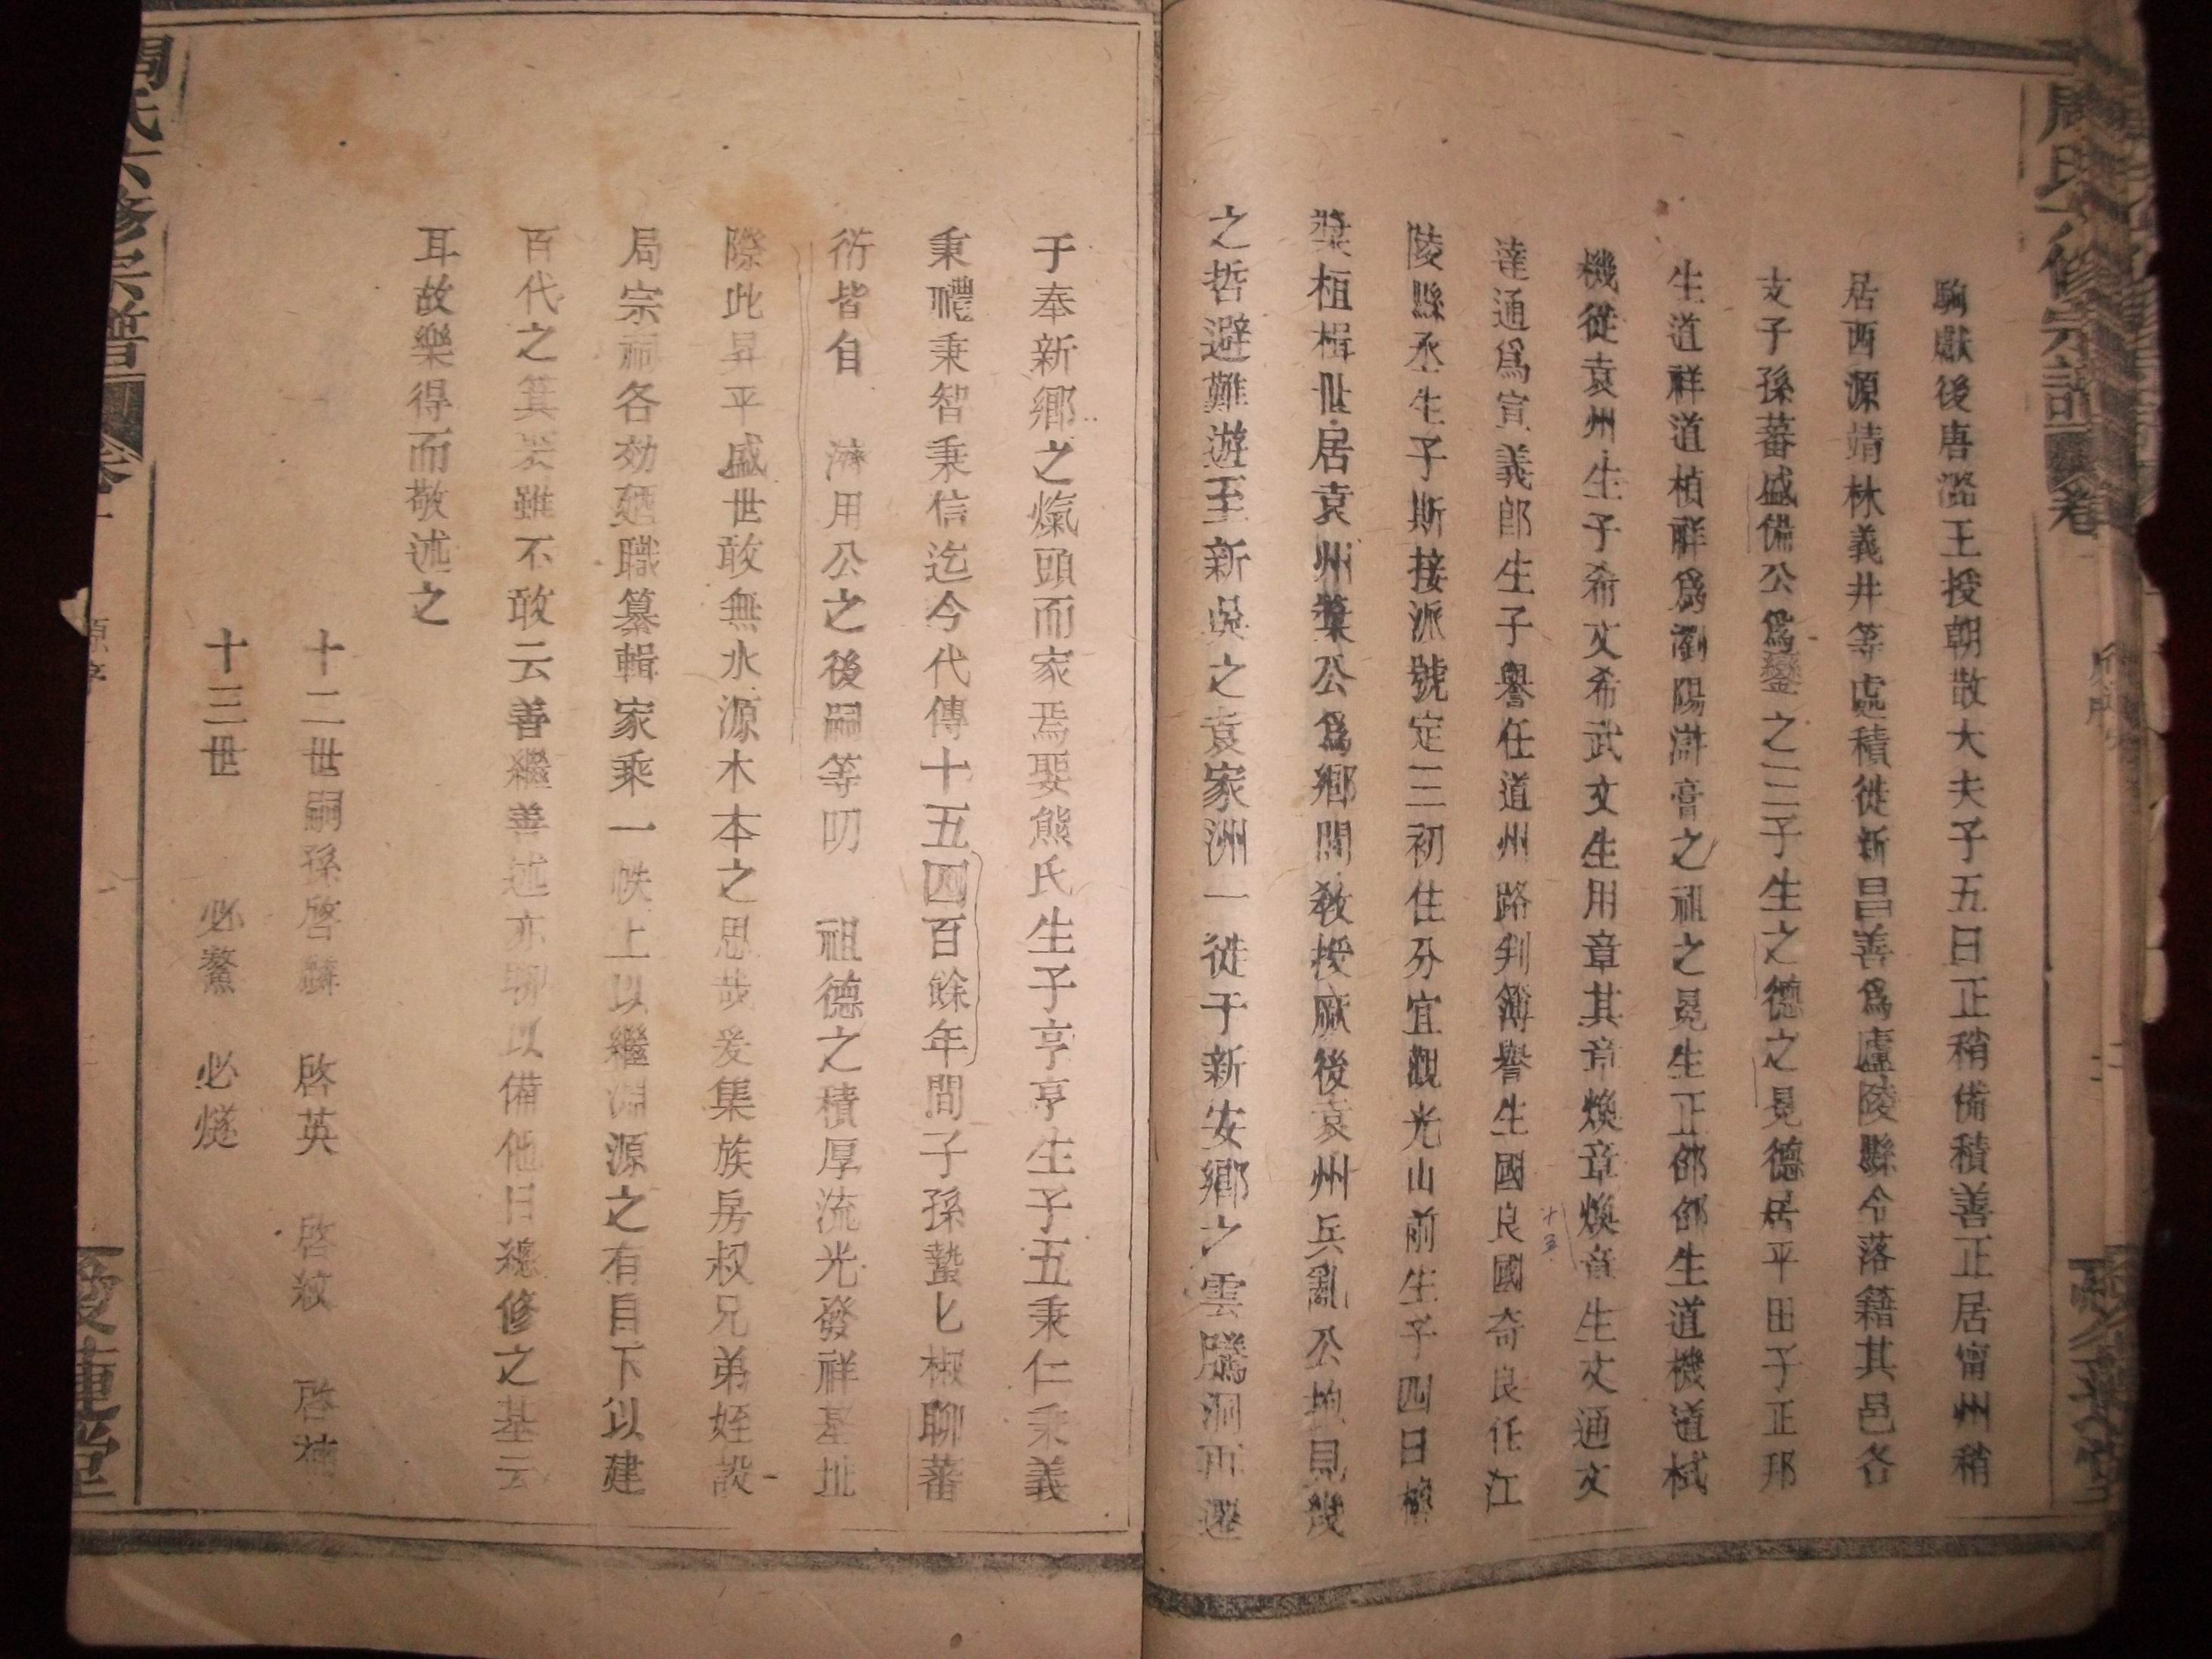 周氏六修宗譜 卷一
駒獻後唐潞王授朝散大夫子五曰正稍備積善正居甯州稍
居西源靖林義井等處積徙新昌善爲廬陵縣令落籍其邑各
支子孫蕃盛備公爲鑾之三子生之德之晃德居平田子正邦
生道祥道楨祥爲瀏陽滸膏之祖之晃生正郃郃生道機道栻
機從袁州生子希文希武文生用章其章煥章煥章生文通文
達通爲宣義郎生子譽任道州路判簿譽生國良國奇良任江
陵縣丞生子斯接派號定三初住分宜觀光山前生子四曰
桓楫世居袁州葉公爲鄉閭教授厥後袁州兵亂公見幾
之哲避難遊至新吳之袁家洲一徙于新安鄉之雲騰洞再遷
于奉新鄉之頭而家焉娶熊氏生子亨亨生子五秉仁秉義
秉禮秉智秉信迄今代傳十五四百餘年間子孫蟄匕椒聊蕃
衍皆自 濟用公之後嗣等叨 祖德之積厚流光發祥基址
際此昇平盛世敢無水源木本之思哉爰集族房叔兄弟姪設
局宗祠各効廼職纂輯家乘一帙上以繼淵源之有自下以建
百代之箕裘雖不敢云善繼善述亦聊以備他日總修之基云
耳故樂得而敬述之
十二世嗣孫啓麟 啓英 啓紋 啓
十三世 必鰲 必燧
周氏六修宗譜 卷一 原序 二 愛蓮堂